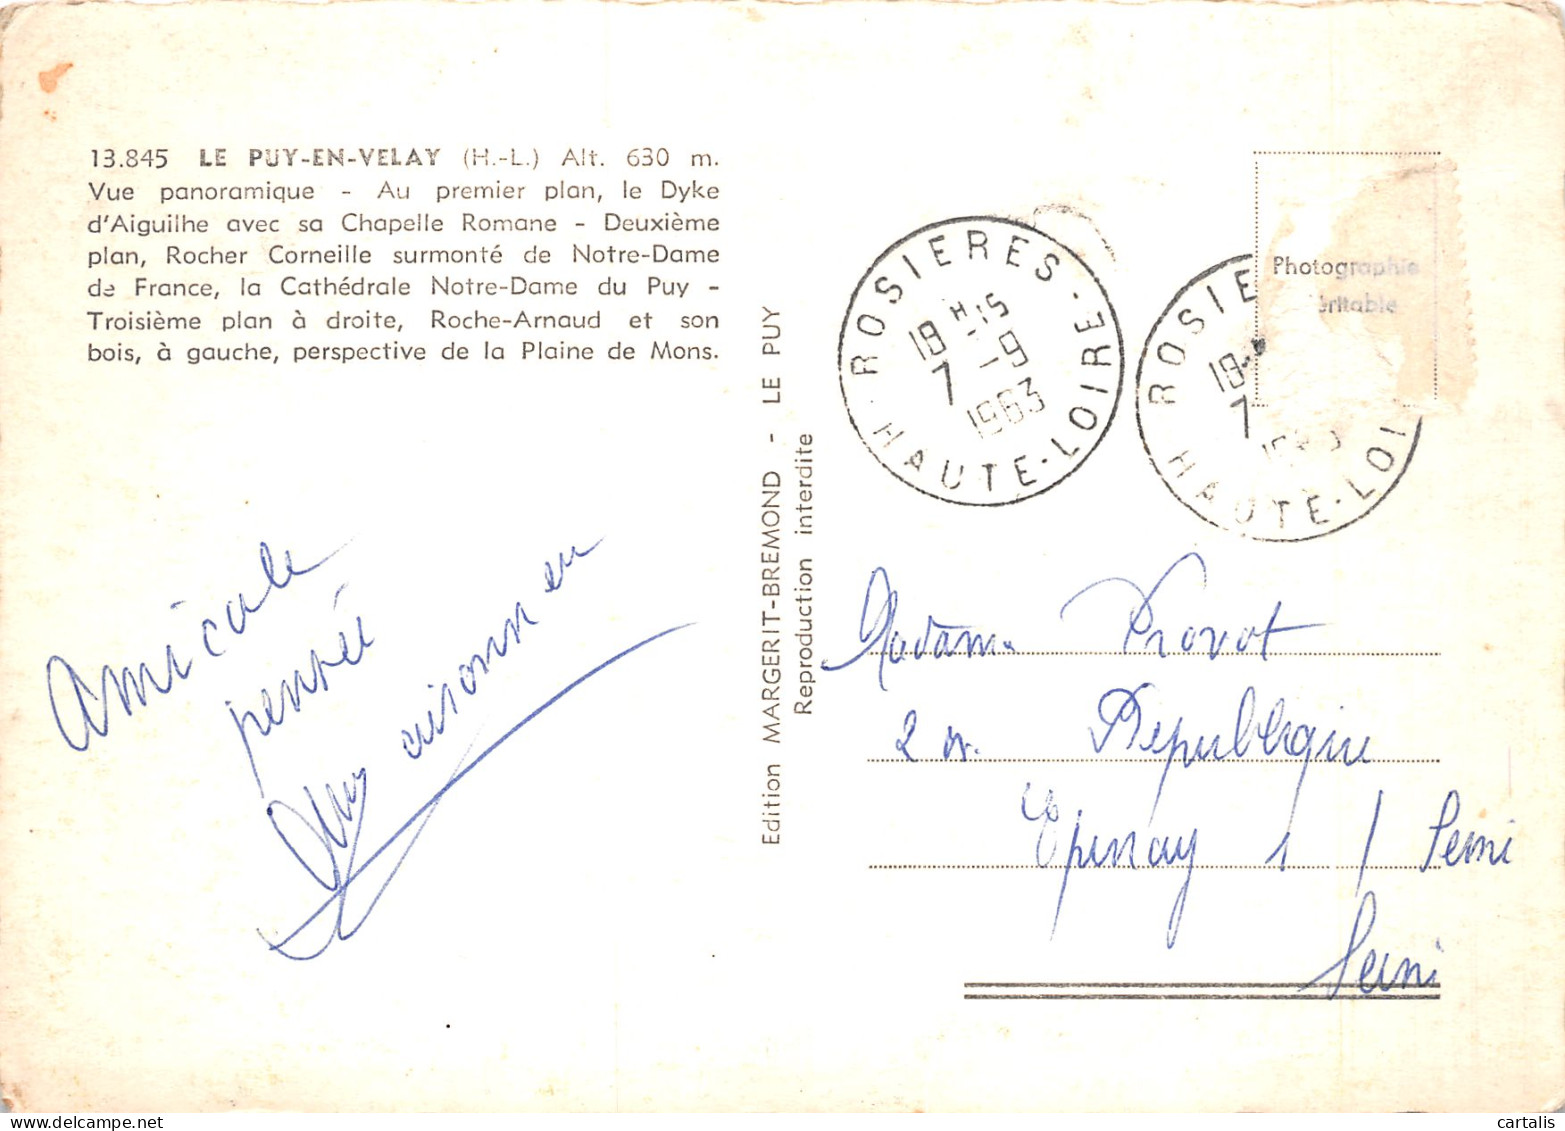 13.845 LE PUY-EN-VELAY (H.-L.) Alt. 630 m.
Vue panoramique - Au premier plan, le Dyke
d'Aiguilhe avec sa Chapelle Romane - Deuxième
plan, Rocher Corneille surmonté de Notre-Dame
de France, la Cathédrale Notre-Dame du Puy -
Troisième plan à droite, Roche-Arnaud et son
bois, à gauche, perspective de la Plaine de Mons.
Amicale
pensée
Edition MARGERIT-BREMOND - LE PUY
Reproduction interdite
ROSIERES - HAUTE-LOIRE
18 H 15
7 - 9
1963
ROSIE
HAUTE-LOI
18
7
Photographie
véritable
Madame Provot
2 Republique
Epinay s / Seine
Seine
cartalis